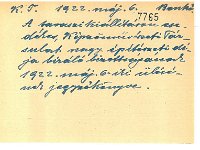 K. T. 1922. máj. 6. Bankó
7765
A tavaszi kiállításon ren-
dező, Képzőművészeti Tár-
sulat nagy építészeti dí-
ja bíráló bizottságának
1922. máj. 6.-iki ülésé-
nek jegyzőkönyve.